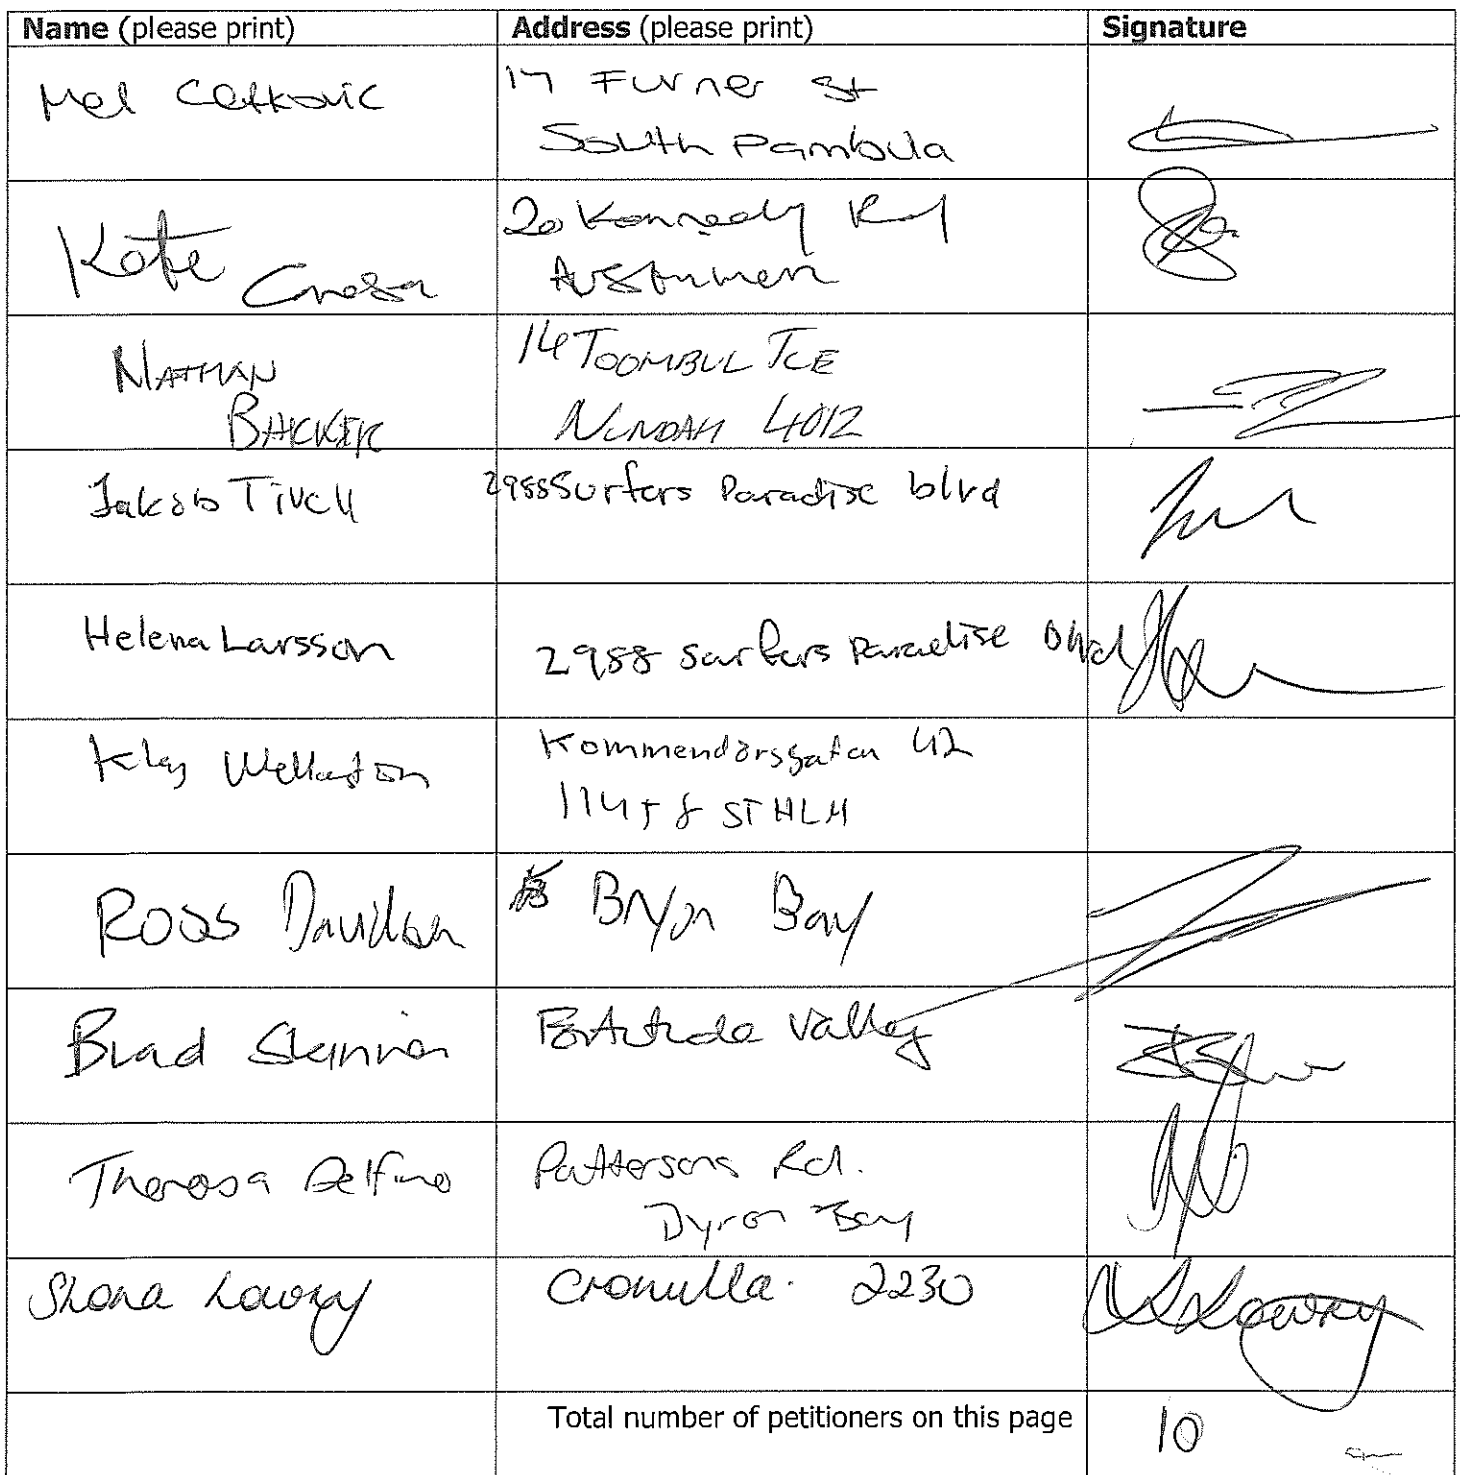 Name (please print) Address (please print) Signature
Mel Cetkovic
17 Furner St
South Pambula
Kate
20 Kennedy Rd
Austinmer
NATHAN
BACKER
14 TOOMBUL TCE
NUNDAH 4012
Jakob Tivell
2988 Surfers Paradise blvd
Helena Larsson
2988 Surfers Paradise blvd
Kommendörsgatan 42
11458 STHLM
Ross Davidson
Bryon Bay
Brad Skinner
Fortitude Valley
Theresa Delfino
Pattersons Rd.
Byron Bay
Shona Lowry
Cronulla. 2230
Lowry
Total number of petitioners on this page 10